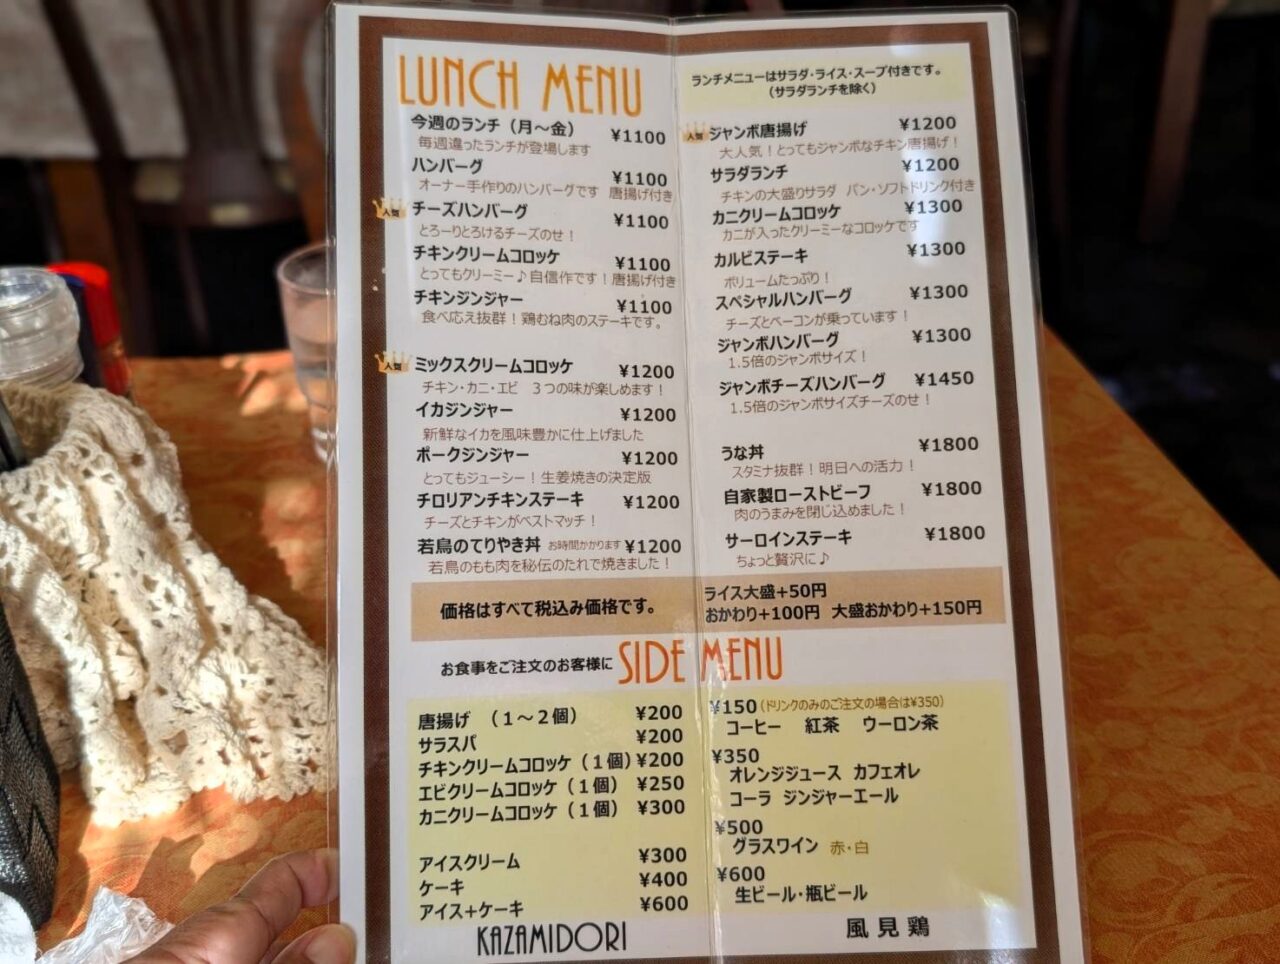 LUNCH MENU
今週のランチ（月～金） ¥1100
毎週違ったランチが登場します
ハンバーグ ¥1100
オーナー手作りのハンバーグです 唐揚げ付き
人気 チーズハンバーグ ¥1100
とろーりとろけるチーズのせ！
チキンクリームコロッケ ¥1100
とってもクリーミー♪自信作です！唐揚げ付き
チキンジンジャー ¥1100
食べ応え抜群！鶏むね肉のステーキです。
人気 ミックスクリームコロッケ ¥1200
チキン・カニ・エビ ３つの味が楽しめます！
イカジンジャー ¥1200
新鮮なイカを風味豊かに仕上げました
ポークジンジャー ¥1200
とってもジューシー！生姜焼きの決定版
チロリアンチキンステーキ ¥1200
チーズとチキンがベストマッチ！
若鳥のてりやき丼 お時間かかります ¥1200
若鳥のもも肉を秘伝のたれで焼きました！
ランチメニューはサラダ・ライス・スープ付きです。
（サラダランチを除く）
人気 ジャンボ唐揚げ ¥1200
大人気！とってもジャンボなチキン唐揚げ！
サラダランチ ¥1200
チキンの大盛りサラダ パン・ソフトドリンク付き
カニクリームコロッケ ¥1300
カニが入ったクリーミーなコロッケです
カルビステーキ ¥1300
ボリュームたっぷり！
スペシャルハンバーグ ¥1300
チーズとベーコンが乗っています！
ジャンボハンバーグ ¥1300
1.5倍のジャンボサイズ！
ジャンボチーズハンバーグ ¥1450
1.5倍のジャンボサイズチーズのせ！
うな丼 ¥1800
スタミナ抜群！明日への活力！
自家製ローストビーフ ¥1800
肉のうまみを閉じ込めました！
サーロインステーキ ¥1800
ちょっと贅沢に♪
価格はすべて税込み価格です。
ライス大盛+50円
おかわり+100円 大盛おかわり+150円
お食事をご注文のお客様に SIDE MENU
唐揚げ （１～２個） ¥200
サラスパ ¥200
チキンクリームコロッケ（１個） ¥200
エビクリームコロッケ（１個） ¥250
カニクリームコロッケ（１個） ¥300
アイスクリーム ¥300
ケーキ ¥400
アイス+ケーキ ¥600
¥150（ドリンクのみのご注文の場合は¥350）
コーヒー 紅茶 ウーロン茶
¥350
オレンジジュース カフェオレ
コーラ ジンジャーエール
¥500
グラスワイン 赤・白
¥600
生ビール・瓶ビール
KAZAMIDORI
風見鶏